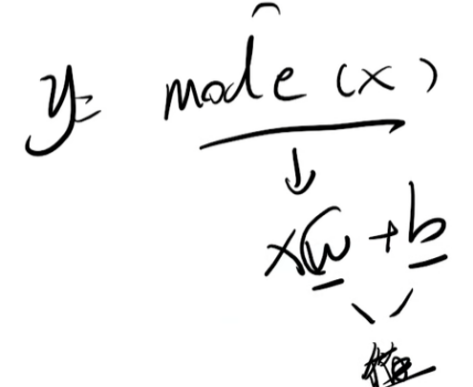 y= mode(x)
xw+b